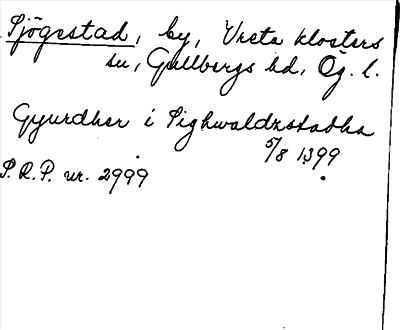 Sjögestad, by, Vreta klosters
sn, Gullbergs hd, Ög. l.
Gyurdher i Sighwaldxstadha
5/8 1399
S. R. P. nr. 2999